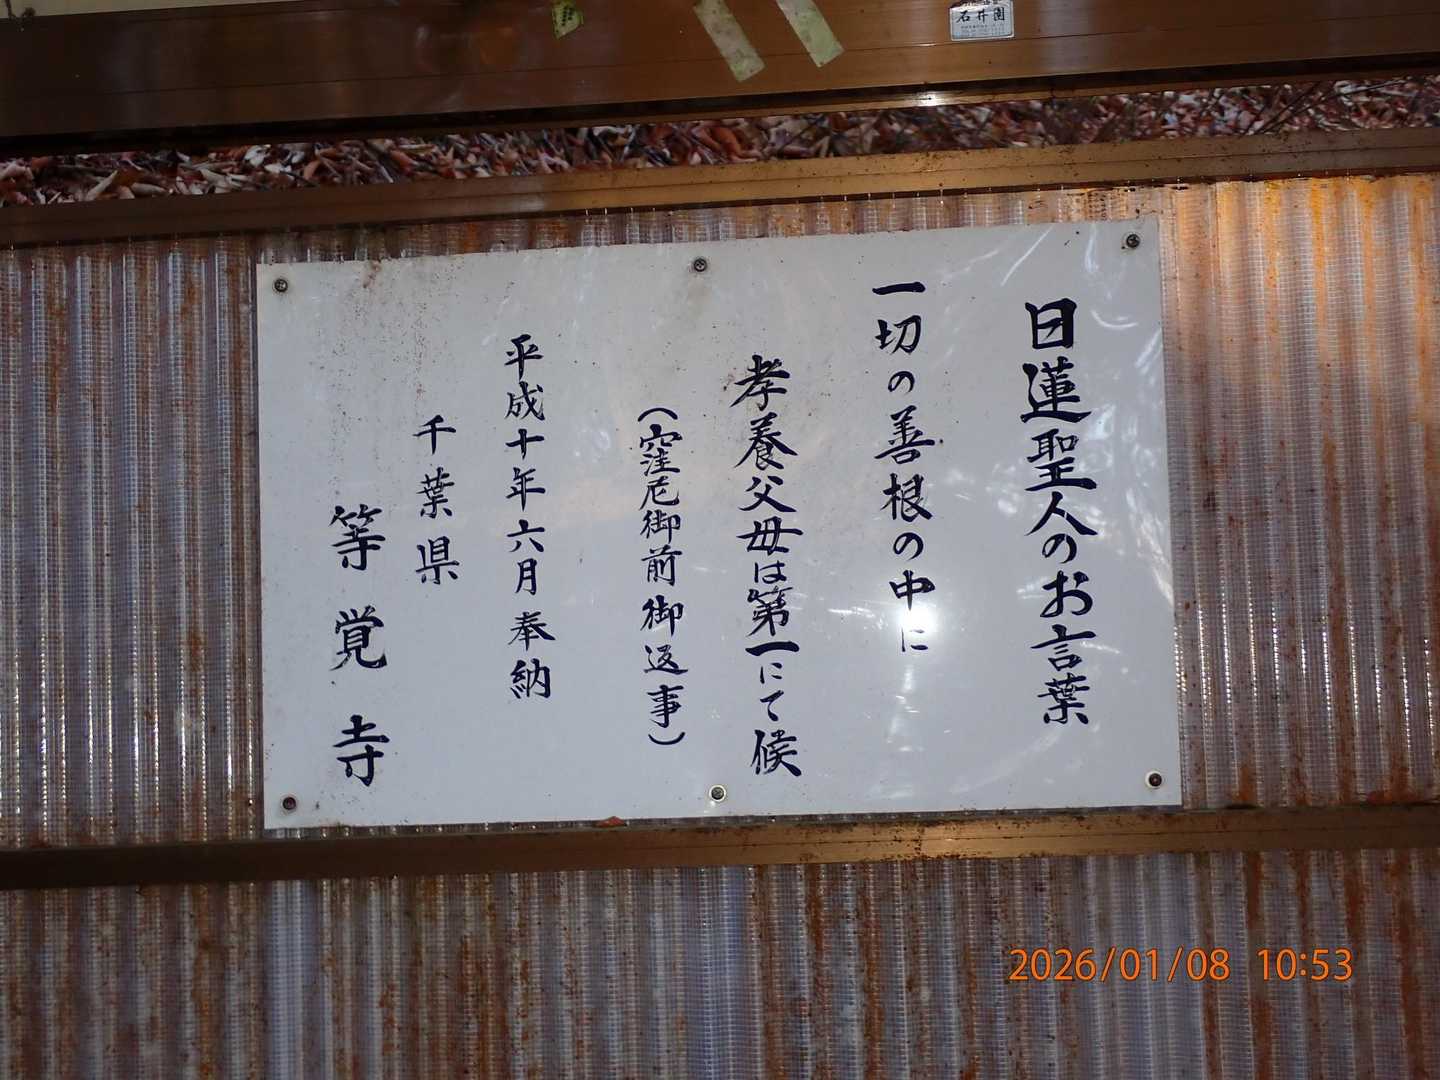 石井園
日蓮聖人のお言葉
一切の善根の中に
孝養父母は第一にて候
(窪尼御前御返事)
平成十年六月奉納
千葉県
等覚寺
2026/01/08 10:53